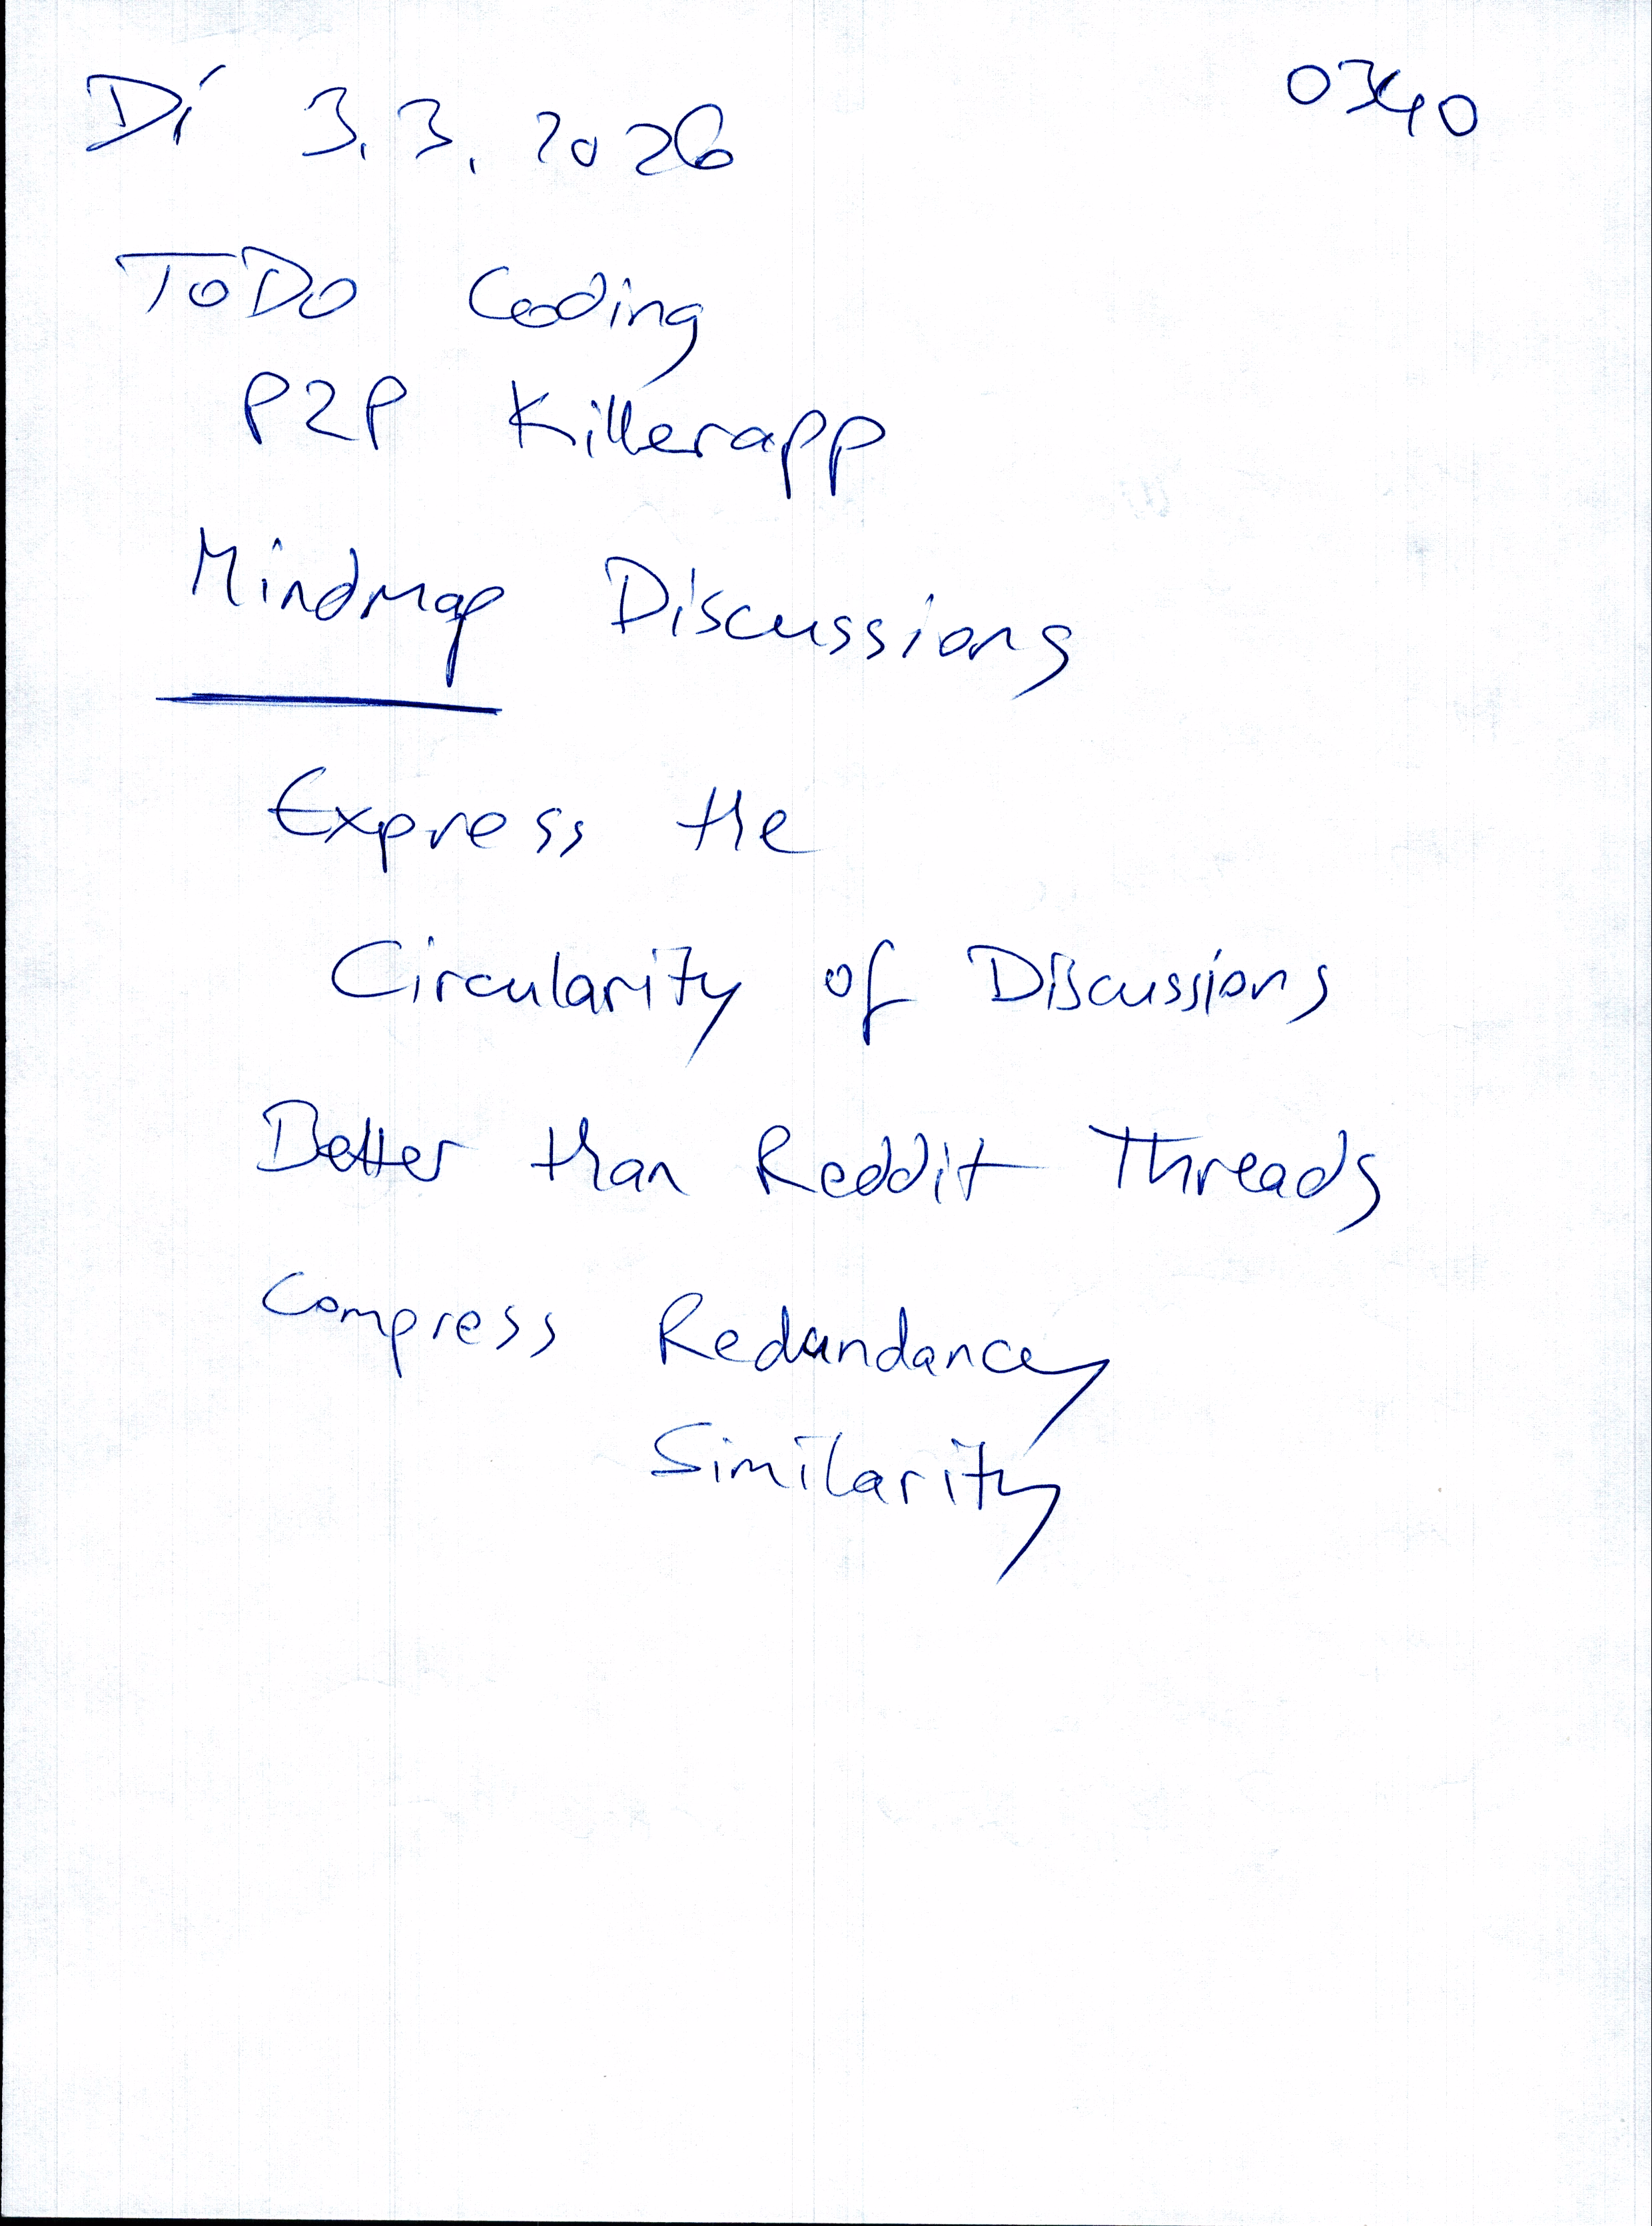 Di 3.3.2026 0340
ToDo Coding
P2P Killerapp
Mindmap Discussions
Express the
Circularity of Discussions
Better than Reddit Threads
Compress Redundancy
Similarity